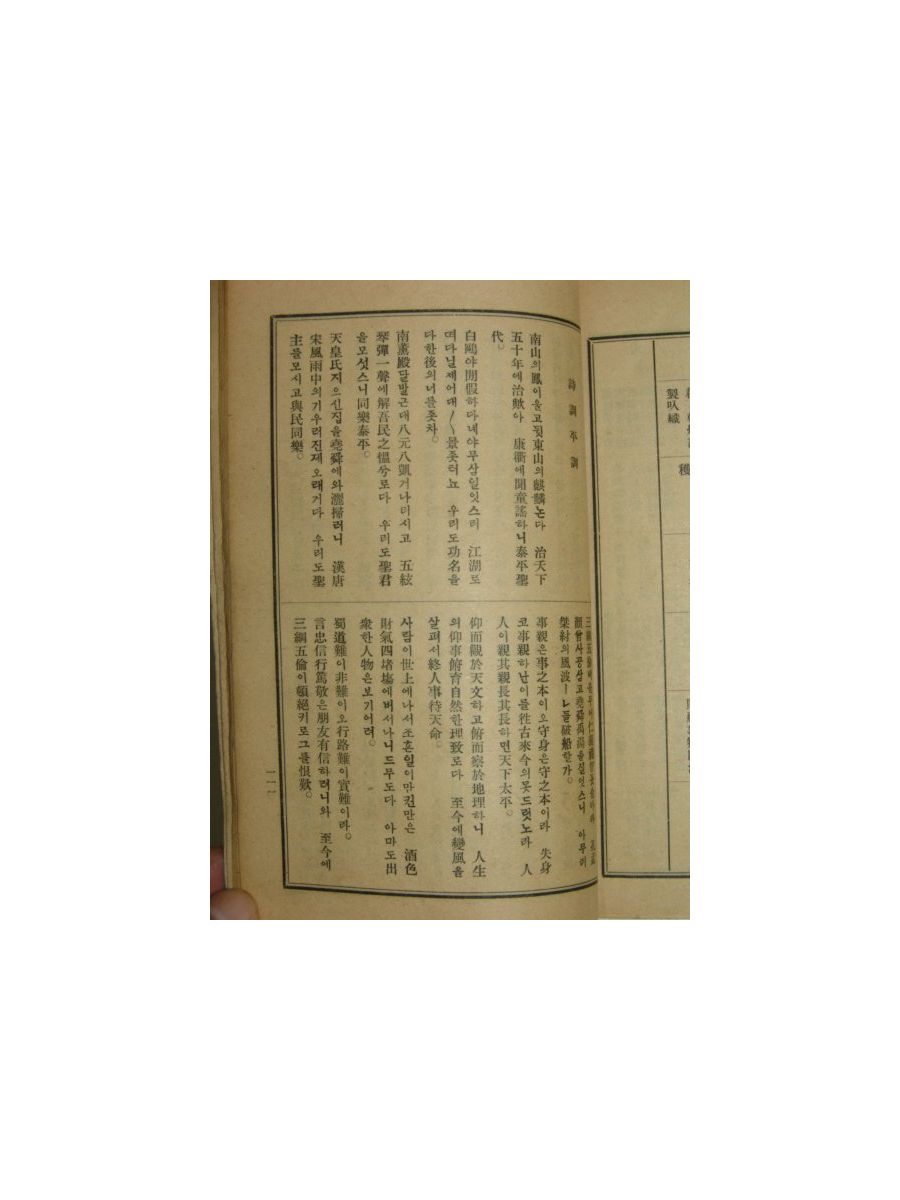 製叺織
穫
詩調平調
南山의鳳이울고뒷東山의麒麟논다 治天下
五十年에治歟아 康衢에聞童謠하니泰平聖
代。
白鷗야閒假하다녜야무삼일잇스리 江湖로
떠다닐제어대〳〵景좃터뇨 우리도功名을
다한後의너를좃차。
南薰殿달발근대八元八凱거나리시고 五絃
琴彈一聲에解吾民之慍兮로다 우리도聖君
을모섯스니同樂泰平。
天皇氏지으신집을堯舜에와灑掃러니 漢唐
宋風雨中의기우러진제오래기다 우리도聖
主를모시고與民同樂。
顔曾사공삼고堯舜禹湯을실엇스니 아무리
桀紂의風波ㅣㄴ들破船할가。
事親은事之本이오守身은守之本이라 失身
코事親하난이를往古來今의못드럿노라 人
人이親其親長其長하면天下太平。
仰而觀於天文하고俯而察於地理하니 人生
의仰事俯育自然한理致로다 至今에變風을
살펴서終人事待天命。
사람이世上에나서조흔일이만컨만은 酒色
財氣四堵墻에버서나니드무도다 아마도出
衆한人物은보기어려。
蜀道難이非難이오行路難이實難이라。
言忠信行篤敬은朋友有信하려니와 至今에
三綱五倫이頓絕키로그를恨歎。